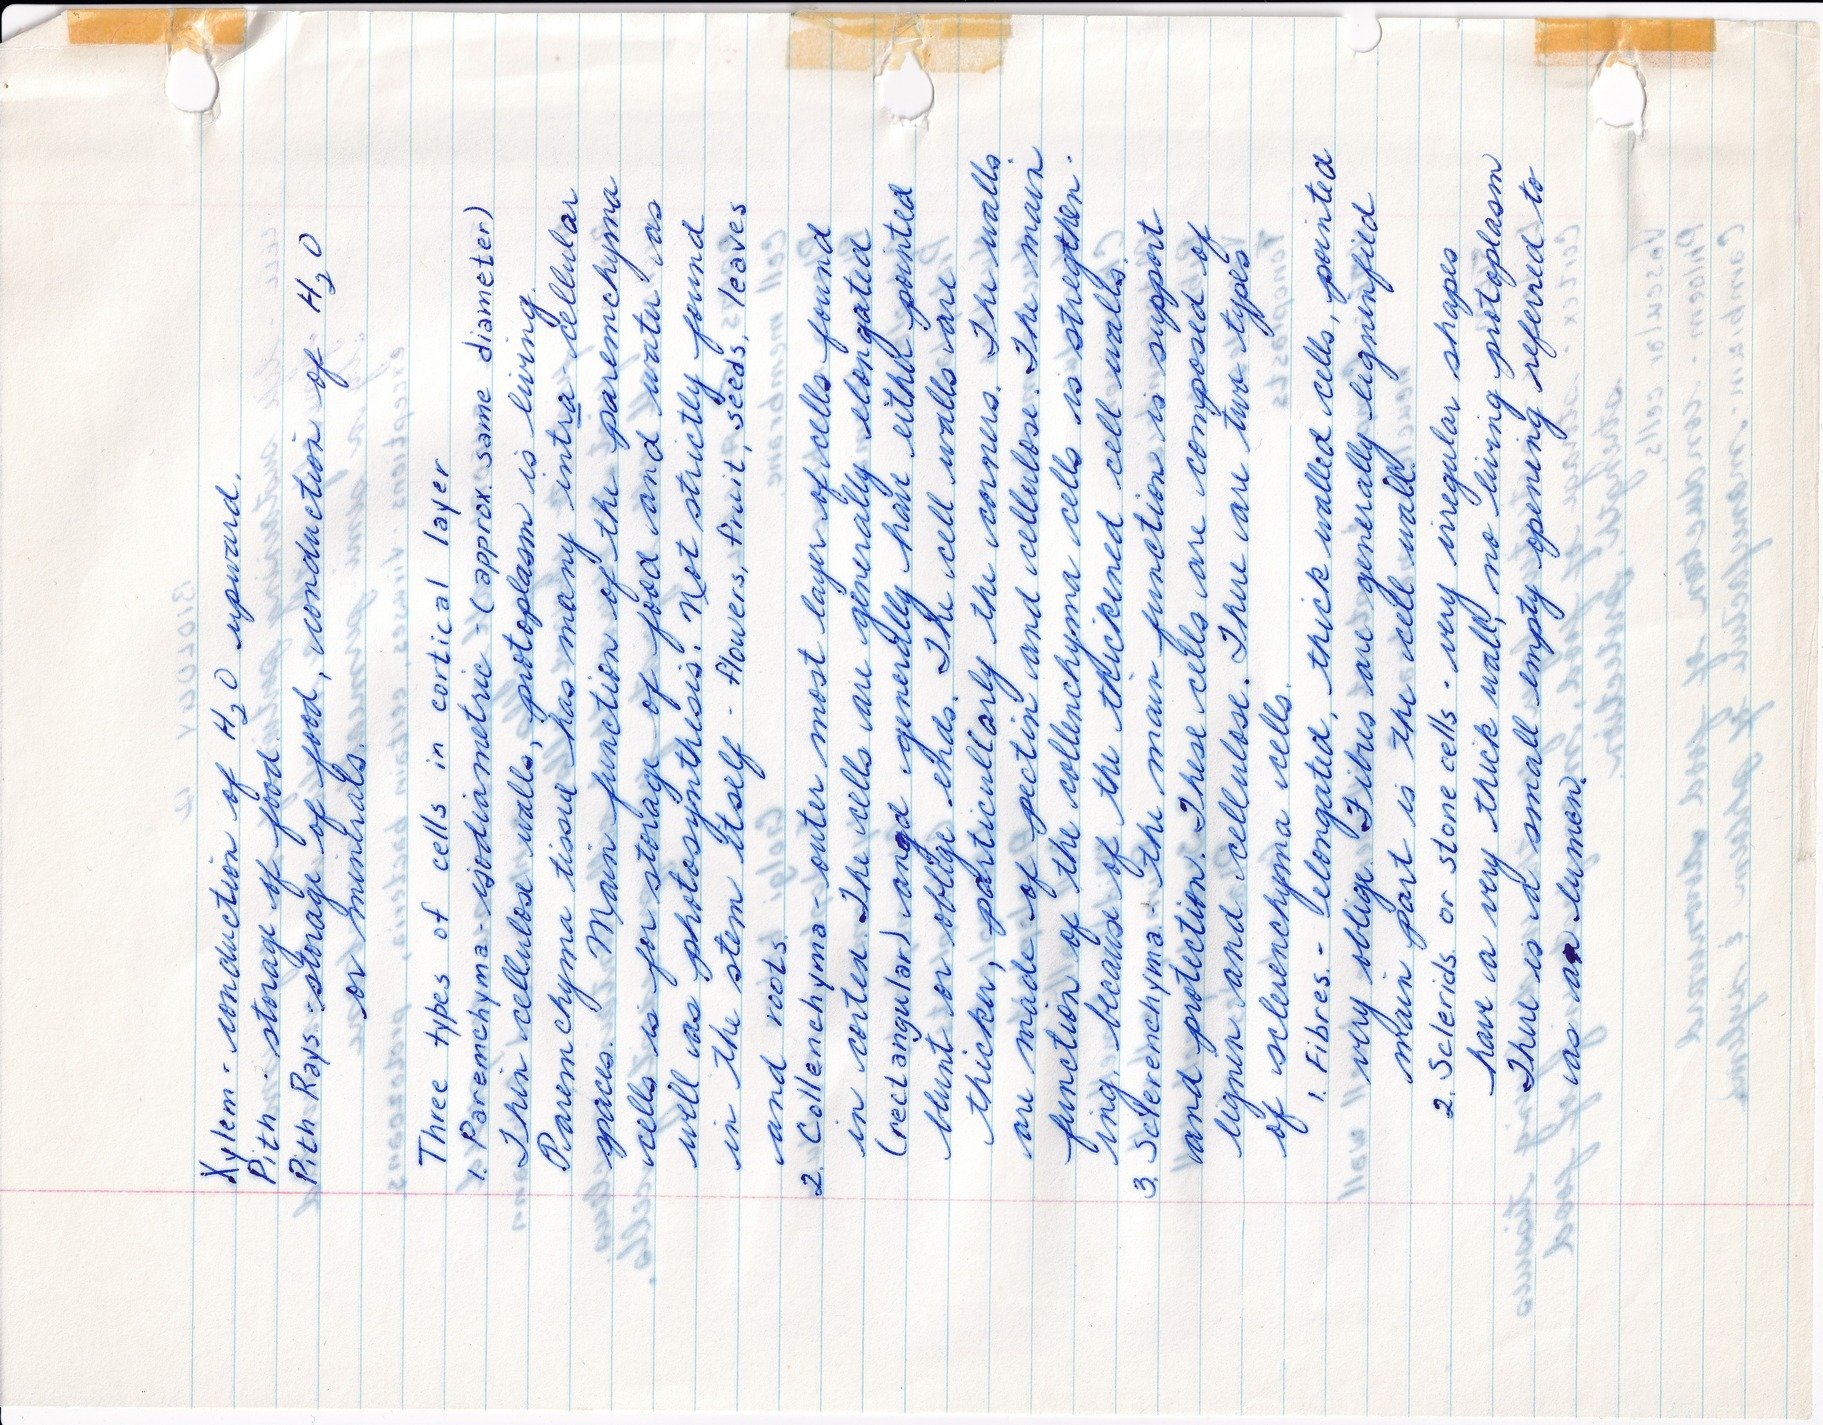 Xylem - conduction of H2O upward.
Pith - storage of food.
Pith Rays - storage of food, conduction of H2O
or minerals.
Three types of cells in cortical layer
1. Paremchyma - isodiametric - (approx. same diameter)
Thin cellulose walls, protoplasm is living.
Paremchyma tissue has many intra-cellular
spaces. Main function of the paremchyma
cells is for storage of food and water as
well as photosynthesis. Not strictly found
in the stem itself - flowers, fruit, seeds, leaves
and roots.
2. Collenchyma - outer most layer of cells found
in cortex. The cells are generally elongated
(rectangular) and generally have either pointed
blunt or oblige ends. The cell walls are
thicker, particullarly the corners. The walls
are made of pectin and cellulose. The main
function of the collenchyma cells is stregthen-
ing, because of the thickened cell walls.
3. Sclerenchyma - the main function is support
and protection. These cells are composed of
lignin and cellulose. There are two types
of sclerenchyma cells.
1. Fibres - elongated, thick walled cells, pointed
very oblige. Fibres are generally ligninfied
main part is the cell wall.
2. Sclerids or stone cells - very irregular shapes
have a very thick wall, no living protoplasm
There is a small empty opening referred to
as a lumen.